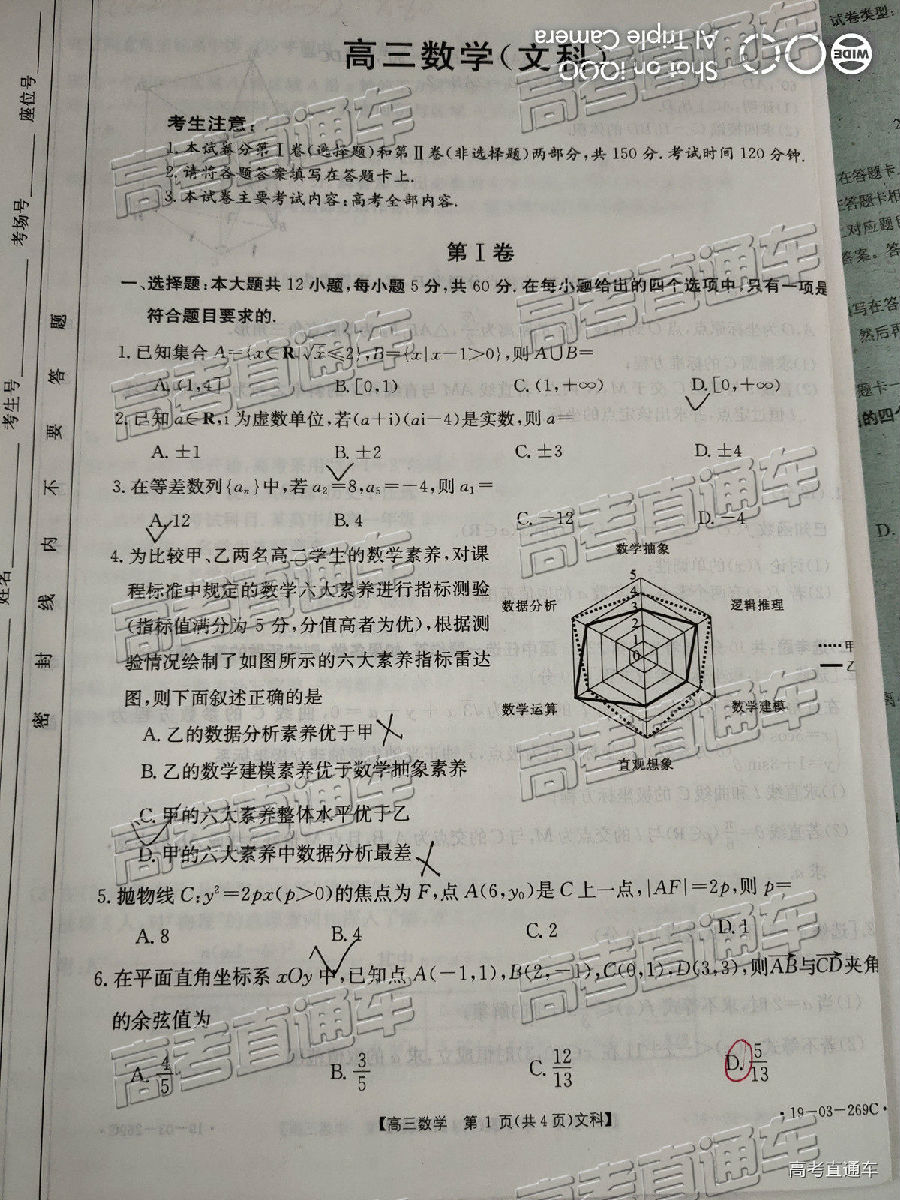 高三数学(文科)
Shot on iQOO
AI Triple Camera
WIDE
试卷类型:
座位号
考场号
考生号
姓名
密 封 线 内 不 要 答 题
考生注意:
1.本试卷分第Ⅰ卷(选择题)和第Ⅱ卷(非选择题)两部分,共150分.考试时间120分钟.
2.请将各题答案填写在答题卡上.
3.本试卷主要考试内容:高考全部内容.
第Ⅰ卷
一、选择题:本大题共12小题,每小题5分,共60分.在每小题给出的四个选项中,只有一项是
符合题目要求的.
1.已知集合A={x∈R|√x≤2},B={x|x-1>0},则A∪B=
A.(1,4] B.[0,1) C.(1,+∞) D.[0,+∞)
2.已知a∈R,i为虚数单位,若(a+i)(ai-4)是实数,则a=
A.±1 B.±2 C.±3 D.±4
3.在等差数列{aₙ}中,若a₂=8,a₅=-4,则a₁=
A.12 B.4 C.-12 D.-4
4.为比较甲、乙两名高二学生的数学素养,对课
程标准中规定的数学六大素养进行指标测验
(指标值满分为5分,分值高者为优),根据测
验情况绘制了如图所示的六大素养指标雷达
图,则下面叙述正确的是
A.乙的数据分析素养优于甲
B.乙的数学建模素养优于数学抽象素养
C.甲的六大素养整体水平优于乙
D.甲的六大素养中数据分析最差
数学抽象
5
4
3
2
1
0
数据分析
逻辑推理
甲
乙
数学运算
数学建模
直观想象
5.抛物线C:y²=2px(p>0)的焦点为F,点A(6,y₀)是C上一点,|AF|=2p,则p=
A.8 B.4 C.2 D.1
6.在平面直角坐标系xOy中,已知点A(-1,1),B(2,-1),C(0,1),D(3,3),则AB与CD夹角
的余弦值为
A.4/5 B.3/5 C.12/13 D.5/13
【高三数学 第1页(共4页)文科】
·19-03-269C·
高考直通车